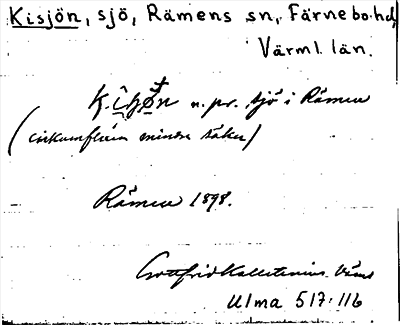 Kisjön, sjö, Rämens sn, Färnebo hd,
Värml. län.
n. pr. sjö i Rämen
(cirkumflexen mindre säker)
Rämen 1898.
Gottfrid Kallstenius. Värml
Ulma 517:116